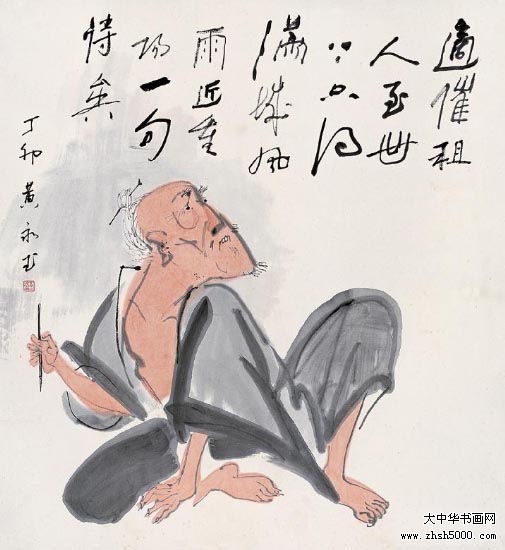 適催租
人至世
只得
滿城風
雨近重
陽一句
詩矣
丁卯 黄永玉
大中华书画网
www.zhsh5000.com